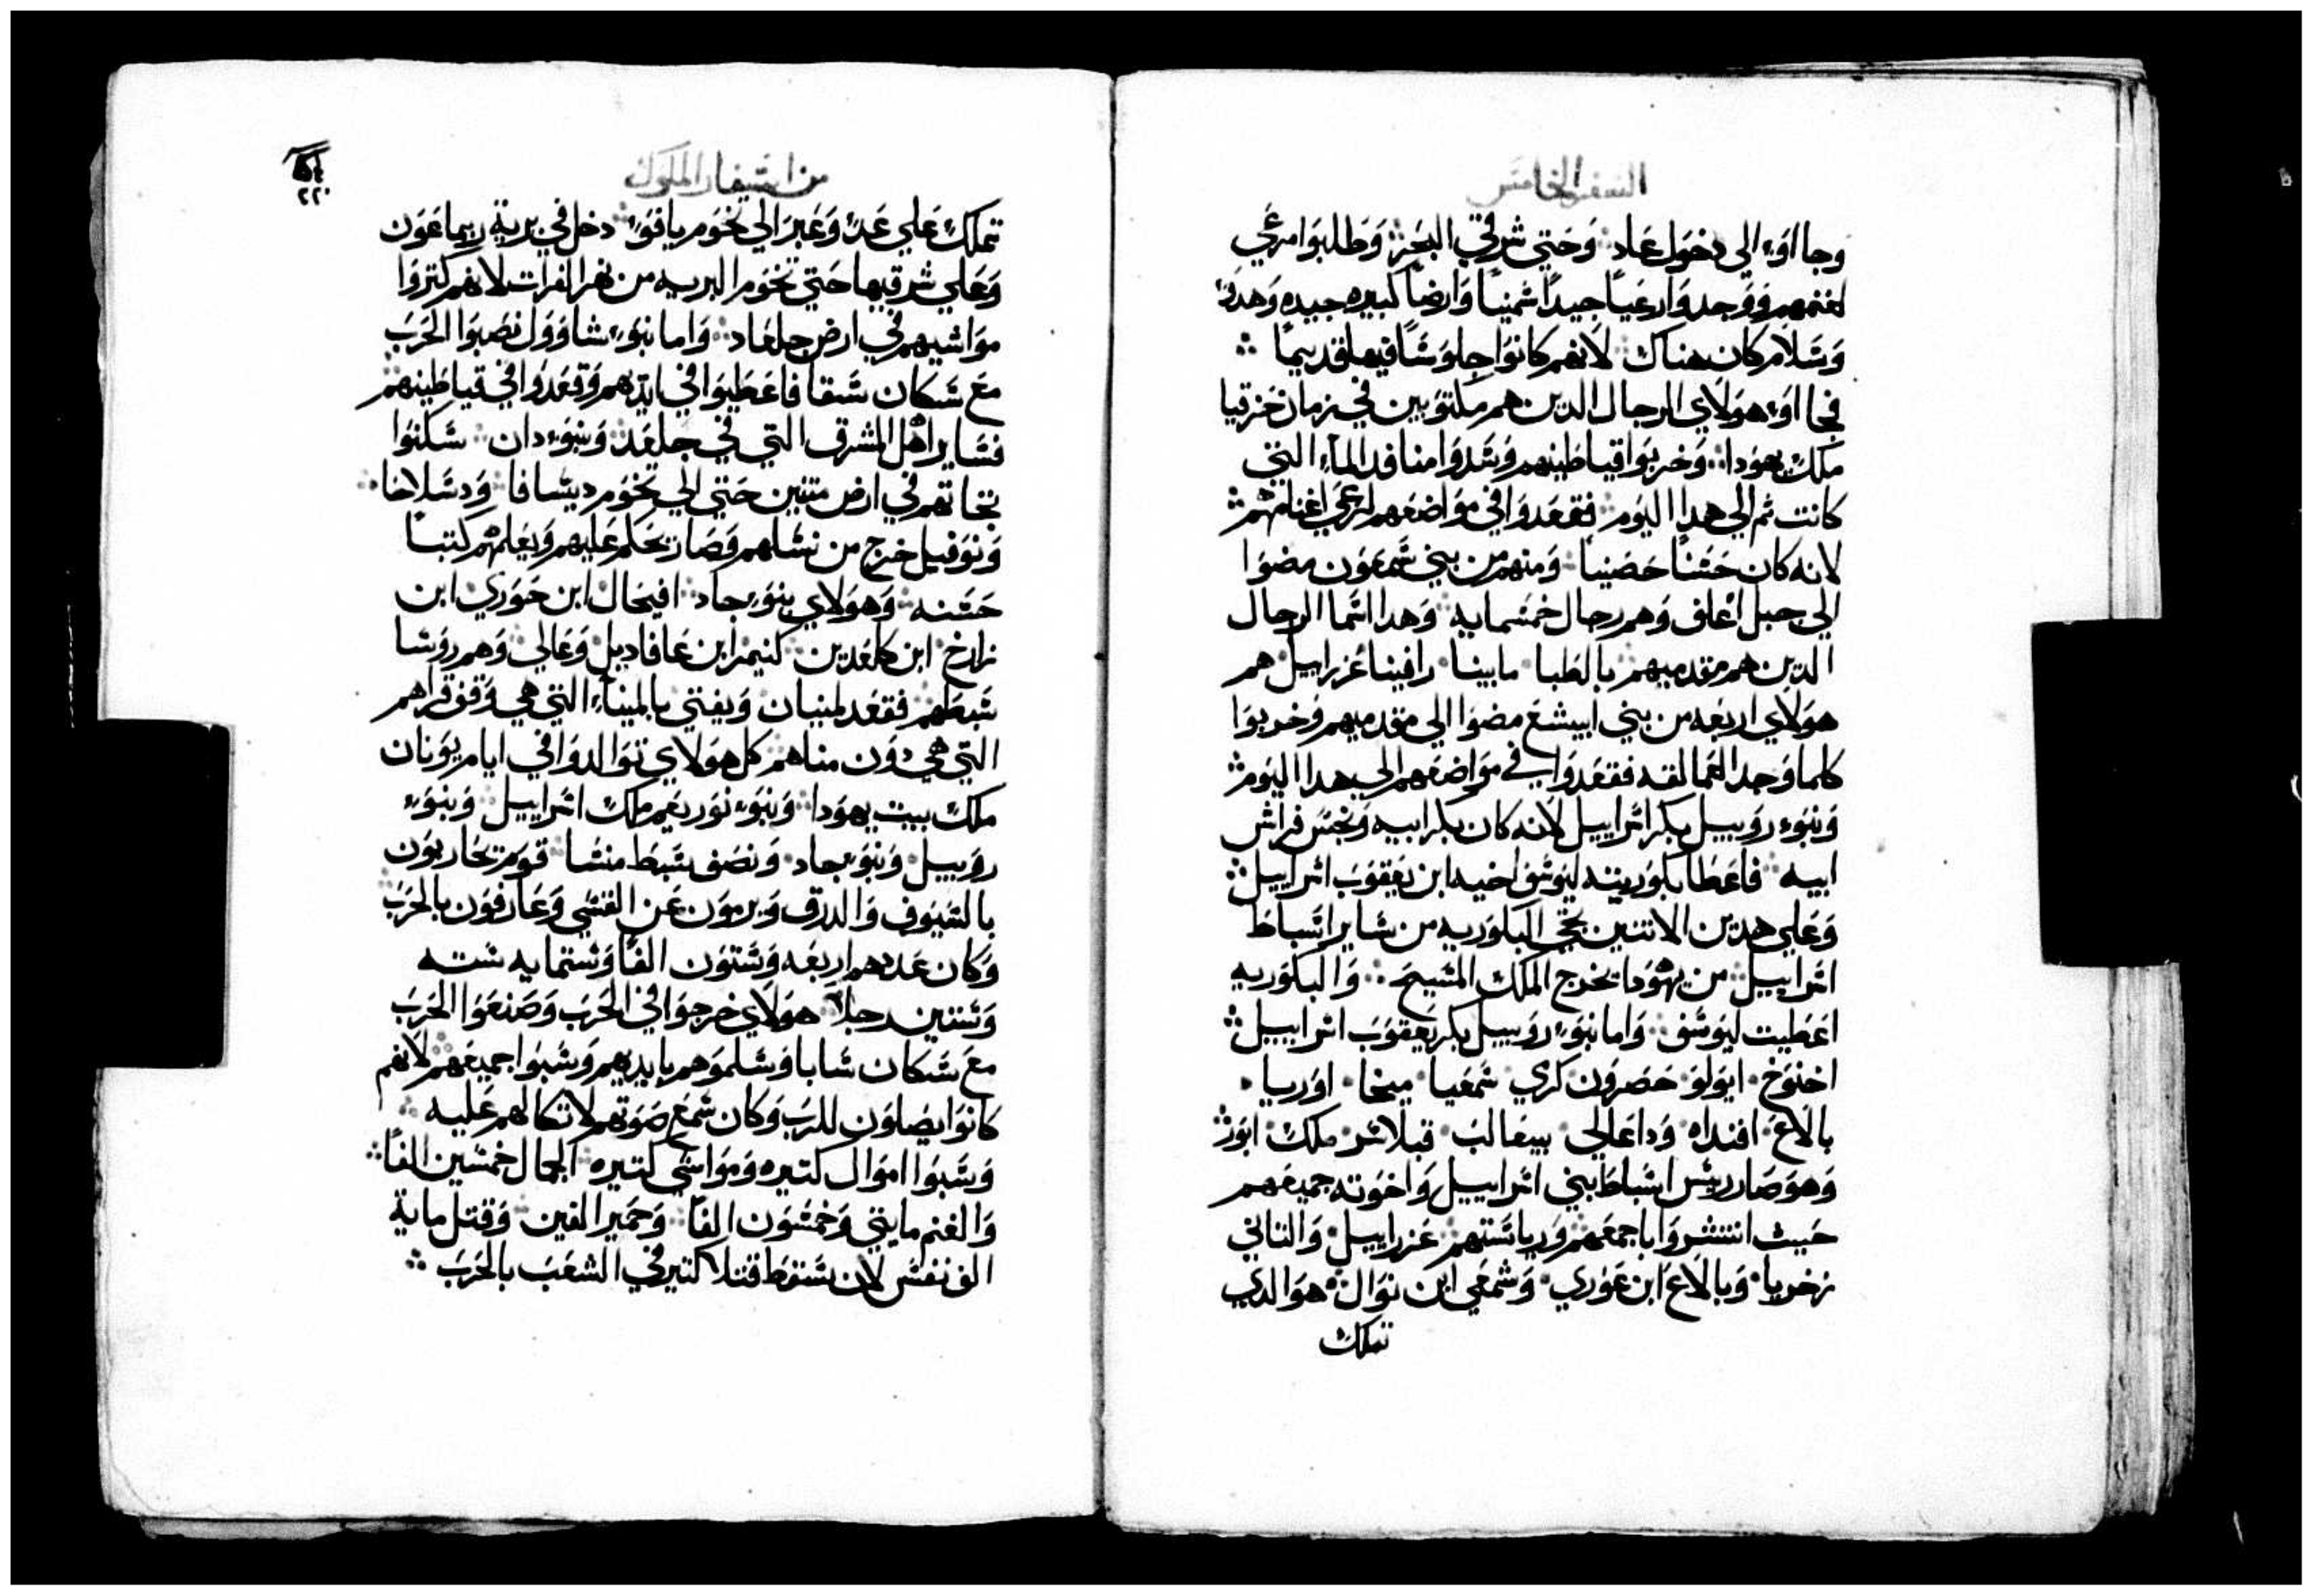 السفر الخامس
وجااوء الي دخول عاد وحتي شرقي البحر وطلبوا مرعي
لغنمهم ووجدوا رعيا جيدا شمنيا وارضا كبيره جيده وهدوا
وسلام كان هناك لانهم كانوا جلوسا فيها قديما
فجااوء هولاي الرجال الدين هم مكتوبين في زمان حزقيا
ملك يهودا وخربوا قياطينهم وسدوا منافد الماء التي
كانت ثم الي هدا اليوم فقعدوا في مواضعهم لرعي اغنامهم
لانه كان حسنا حصينا ومنهم من بني شمعون مضوا
الي جبل اغاف وهم رجال خمسمايه وهدا اسما الرجال
الدين هم مقدميهم بالطبا مابينا رافينا عزراييل هم
هولاي اربعه من بني اييشع مضوا الي مقدميهم وخربوا
كلما وجد العمالقه فقعدوا في مواضعهم الي هدا اليوم
وبنوء روبييل بكر اسراييل لانه كان بكر ابيه ونجس فراش
ابيه فاعطا بكوريته ليوسف اخيه ابن يعقوب اسراييل
وعلي هدين الاتنين تجي البكوريه من ساير اسباط
اسراييل من يهودا يخرج الملك المسيح والبكوريه
اعطيت ليوسف واما بنوء روبييل بكر يعقوب اسراييل
اخنوخ ابولو حصرون كري شمعيا ميخا اوريا
بالاع افنداه وداعالي بيعالب قبلاسر ملك ابور
وهو صار ريس اسباط بني اسراييل واخوته جميعهم
حيث انتشروا باجمعهم ورياستهم عزراييل والتاني
زخريا وبالاع ابن عوري وشمعي ابن نوال هو الدي
تملك
من اسفار الملوك
٢٢٠
تملك علي عد وعبر الي تخوم يافو دخل في برية ريماعون
وعلي شرقيها حتي تخوم البريه من نهر الفرات لانهم كتروا
مواشيهم في ارض جلعاد واما بنوء شاوول نصبوا الحرب
مع سكان سقا فاعطيوا في ايديهم وقعدوا في قياطينهم
فساير اهل المشرق التي في جلعد وبنوء دان سكنوا
تجاتهم في ارض متنين حتي الي تخوم ديسافا ودسلاخا
ونوفيل خرج من نسلهم وصار يحكم عليهم ويعلمهم كتبا
حسنه وهولاي بنوء جاد افيحال ابن حوري ابن
زارخ ابن كلعدين كنيمز ابن عافاديل وعالي وهم روسا
سبطهم فقعد لمنيان ويفتي بالميناء التي هي وفق قراهم
التي هي دون مناهم كل هولاي توالدوا في ايام يونان
ملك بيت يهودا وبنوء نوريعم ملك اسراييل وبنوء
روبييل وبنوء جاد ونصف سبط منسا قوم تحاربون
بالسيوف والدرق ويرمون عن القسي وعارفون بالحرب
وكان عددهم اربعه وستون الفا وستمايه سته
وستين رجلا هولاي خرجوا في الحرب وصنعوا الحرب
مع سكان سابا وسلموهم بايديهم وسبوا جميعهم لانهم
كانوا يصلون للرب وكان سمع صوتهم لاتكالهم عليه
وسبوا اموال كتيره ومواشي كتيره الجمال خمسين الفا
والغنم مايتي وخمسون الفا وحمير الفين وقتل ماية
الف نفس لان سقط قتلا كتير في الشعب بالحرب